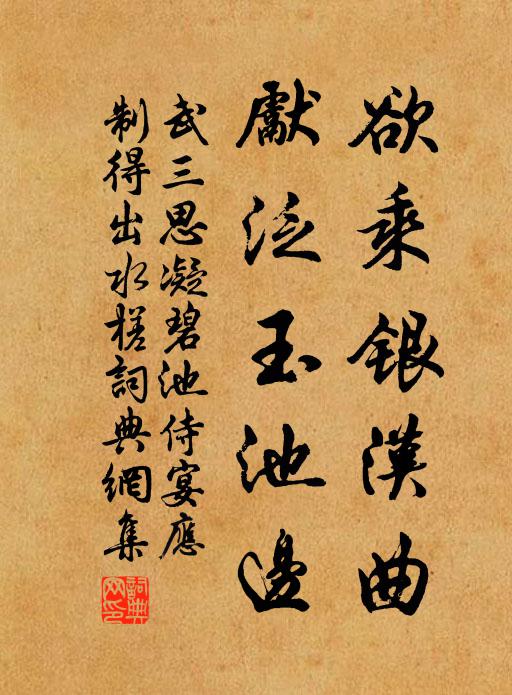 欲乘銀漢曲
獻泛玉池邊
武三思凝碧池侍宴應
制得出水槎詞典網集
詞典網印